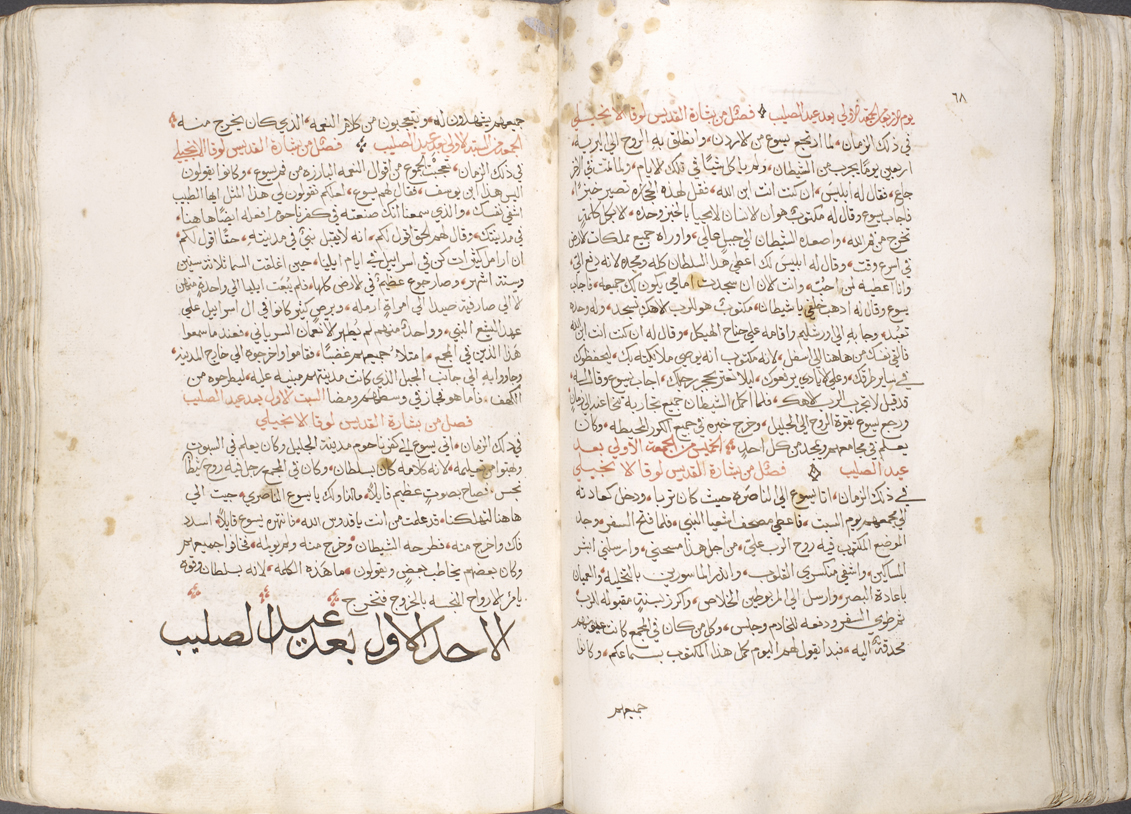 ٦٨
يوم الاربعا من الجمعة الاولى بعد عيد الصليب فصل من بشارة القديس لوقا الانجيلي
في ذلك الزمان، لما ان رجع يسوع من الاردن، وانطلق به الروح الى البرية،
اربعين يومًا يجرب من الشيطان، ولم ياكل شيًا في تلك الايام، ولما تمت في الاخر
جاع، فقال له ابليس، ان كنت انت ابن الله، فقل لهذه الحجارة تصير خبزًا،
فاجاب يسوع وقال له مكتوب هو ان الانسان لا يحيا بالخبز وحده، لا بل بكل كلمة
تخرج من فم الله، واصعده الشيطان الى جبل عالي، واوراه جميع مملكات الارض
في اسرع وقت، وقال له ابليس لك اعطي هذا السلطان كله ومجده لانه دفع الي،
وانا اعطيه لمن احب، وانت الان ان سجدت امامي يكون لك جميعه، فاجاب
يسوع وقال له اذهب خلفي يا شيطان، مكتوب هو للرب الاهك تسجد، وله وحده
تعبد، وجا به الى اورشليم واقامه على جناح الهيكل، وقال له ان كنت انت ابن الله
فالق نفسك من هاهنا الى اسفل، لانه مكتوب انه يوصي ملايكته بك، ليحفظوك
في ساير طرقك، وعلى الايادي يرفعوك، ليلا تعثر بحجر رجلك، اجاب يسوع وقال له
قد قيل لا تجرب الرب الاهك، فلما اكمل الشيطان جميع تجاربه تنحا عنه الى زمان
ورجع يسوع بقوة الروح الى الجليل، وخرج خبره في جميع الكور المحيطه، وكان
يعلم في مجامعهم ويمجد من كل احد، الخميس من الجمعة الاولى بعد
عيد الصليب فصل من بشارة القديس لوقا الانجيلي
في ذلك الزمان، اتا يسوع الى الناصرة حيث كان تربا، ودخل كعادته
الى مجمعهم يوم السبت، فاعطي مصحف اشعيا النبي، فلما فتح السفر، وجد
الموضع المكتوب فيه روح الرب علي، من اجل هذا مسحني، وارسلني ابشر
المساكين، واشفي منكسري القلوب، وانذر الماسورين بالتخليه، والعميان
باعادة البصر، وارسل الى المربوطين الخلاص، واكرز بسنة مقبوله للرب
ثم طوى السفر ودفعه للخادم وجلس، وكل من كان في المجمع كانت عيونهم
محدقة اليه، فبدا يقول لهم اليوم كمل هذا المكتوب بسماعكم، وكانوا
جميعهم
جميعهم يشهدون له، ويتعجبون من كلام النعمه، الذي كان يخرج منه،
الجمعه من السبة الاولى بعد عيد الصليب فصل من بشارة القديس لوقا الانجيلي
في ذلك الزمان، تعجبت الجموع من اقوال النعمه البارزه من فم يسوع، وكانوا يقولون
اليس هذا ابن يوسف، فقال لهم يسوع، لعلكم تقولون لي هذا المثل ايها الطبيب
اشفي نفسك، والذي سمعنا انك صنعته في كفرناحوم افعله ايضًا هاهنا،
في مدينتك، وقال لهم الحق اقول لكم، انه لا يقبل نبي في مدينته، حقًا اقول لكم
ان ارامل كثيرات كن في اسراييل في ايام ايليا، حين اغلقت السما ثلاثة سنين
وستة اشهر، وصار جوع عظيم في الارض كلها، فلم يبعث ايليا الى واحدة منهن
الا الى صارفية صيدا الى امراة ارمله، وبرص كثير كانوا في ال اسراييل على
عهد اليشع النبي، وواحدًا منهم لم يطهر الا نعمان السرياني، فعند ما سمعوا
هذا الذين في المجمع، امتلا جميعهم غضبًا، فقاموا واخرجوه الى خارج المدينة،
وجاووا به الى جانب الجبل الذي كانت مدينتهم مبنيه عليه، ليطرحوه من
الكهف، فاما هو فجاز في وسطهم ومضا السبت الاول بعد عيد الصليب
فصل من بشارة القديس لوقا الانجيلي
في ذلك الزمان، اتى يسوع الى كفرناحوم مدينة الجليل وكان يعلم في السبوت
وبهتوا من تعليمه، لانه كلامه كان بسلطان، وكان في المجمع رجل فيه روح شيطان
نجس، فصاح بصوت عظيم قايلًا، مالنا ولك يا يسوع الناصري، جيت الى
هاهنا لتهلكنا، قد علمت من انت يا قدوس الله، فانتهره يسوع قايلًا، اسدد
فاك واخرج منه، فطرحه الشيطان وخرج منه ولم يولمه، فخافوا جميعهم
وكان بعضهم يخاطب بعض ويقولون، ما هذه الكلمه، لانه بسلطان وقوه
يامر الارواح النجسه بالخروج فتخرج
الاحد الاول بعد عيد الصليب